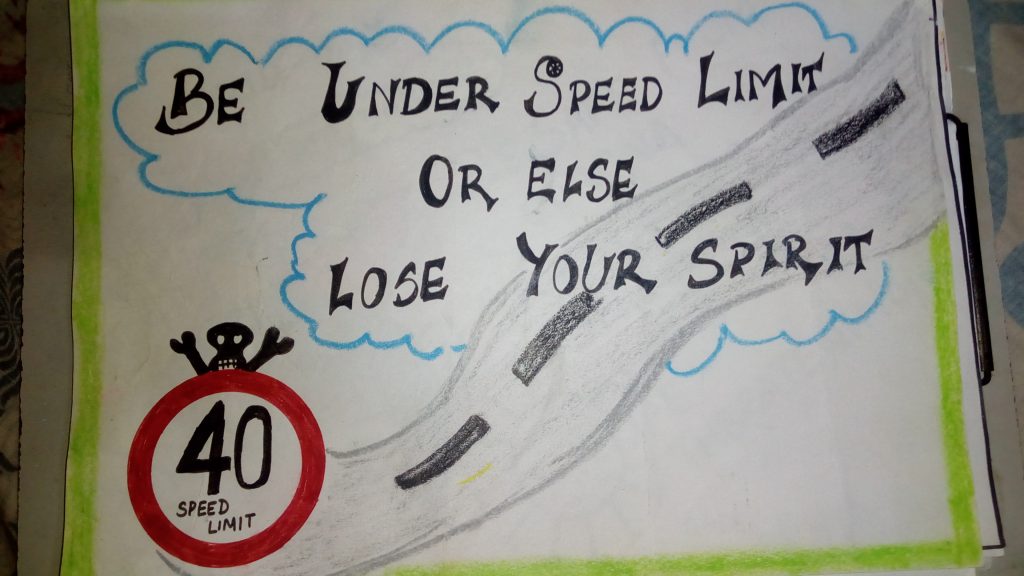 BE UNDER SPEED LIMIT
OR ELSE
LOSE YOUR SPIRIT
40
SPEED
LIMIT